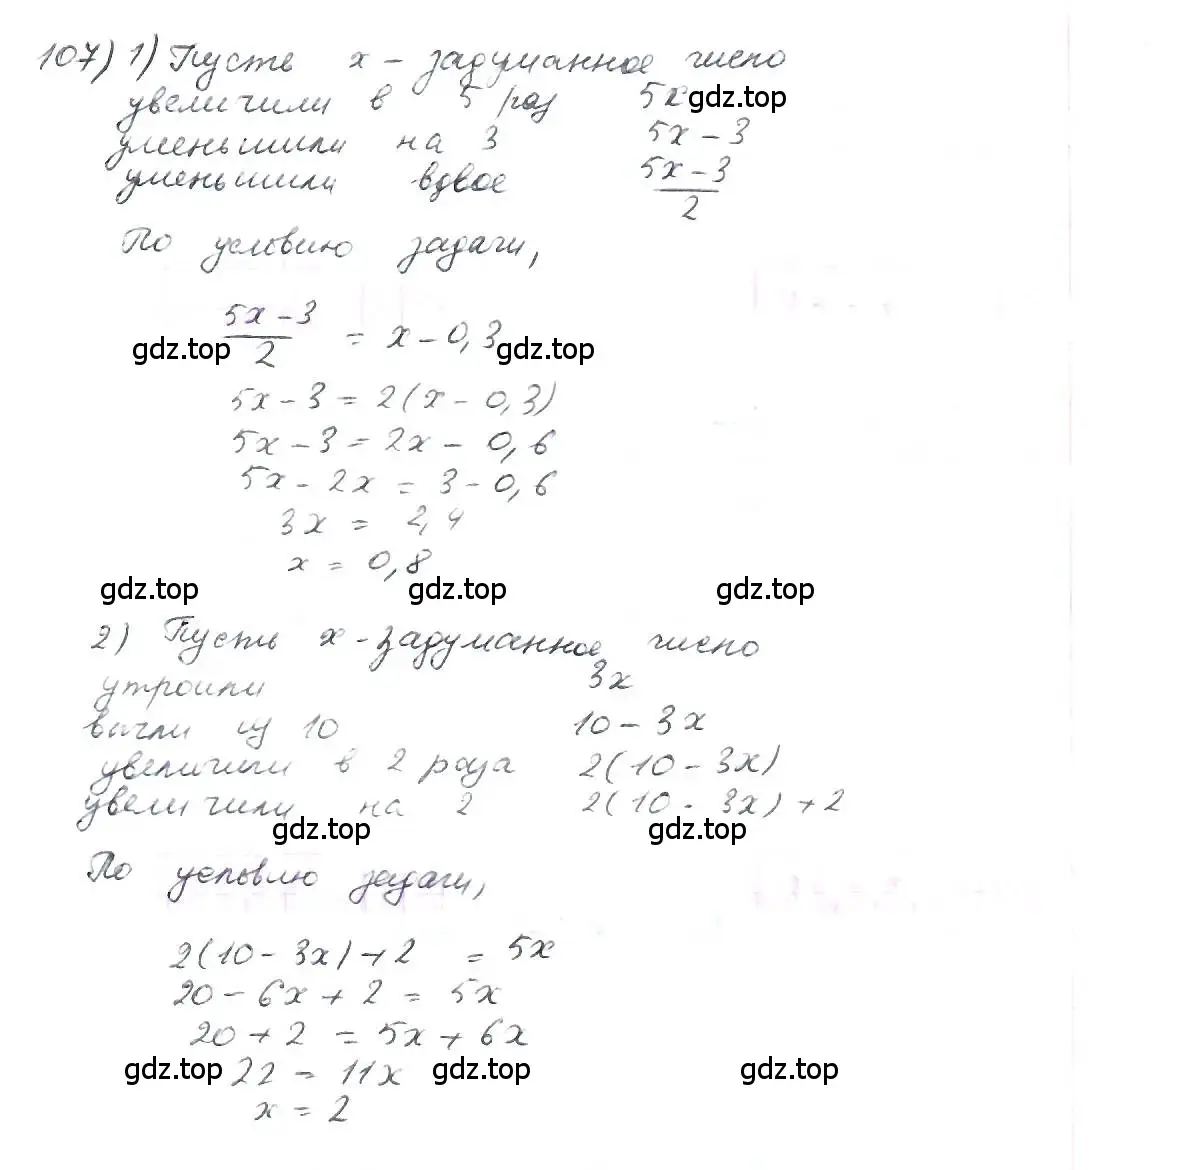 107) 1) Пусть x – задуманное число
увеличили в 5 раз 5x gdz.top
уменьшили на 3 5x – 3
уменьшили вдвое (5x – 3)/2
По условию задачи,
(5x – 3)/2 = x – 0,3
gdz.top gdz.top
5x – 3 = 2(x – 0,3)
5x – 3 = 2x – 0,6
5x – 2x = 3 – 0,6
3x = 2,4
x = 0,8
gdz.top gdz.top gdz.top
2) Пусть x – задуманное число
утроили 3x
вычли из 10 10 – 3x
увеличили в 2 раза 2(10 – 3x)
увеличили на 2 2(10 - 3x) + 2
gdz.top gdz.top
По условию задачи,
2(10 – 3x) + 2 = 5x
20 – 6x + 2 = 5x
20 + 2 = 5x + 6x
gdz.top 22 = 11x gdz.top gdz.top
x = 2